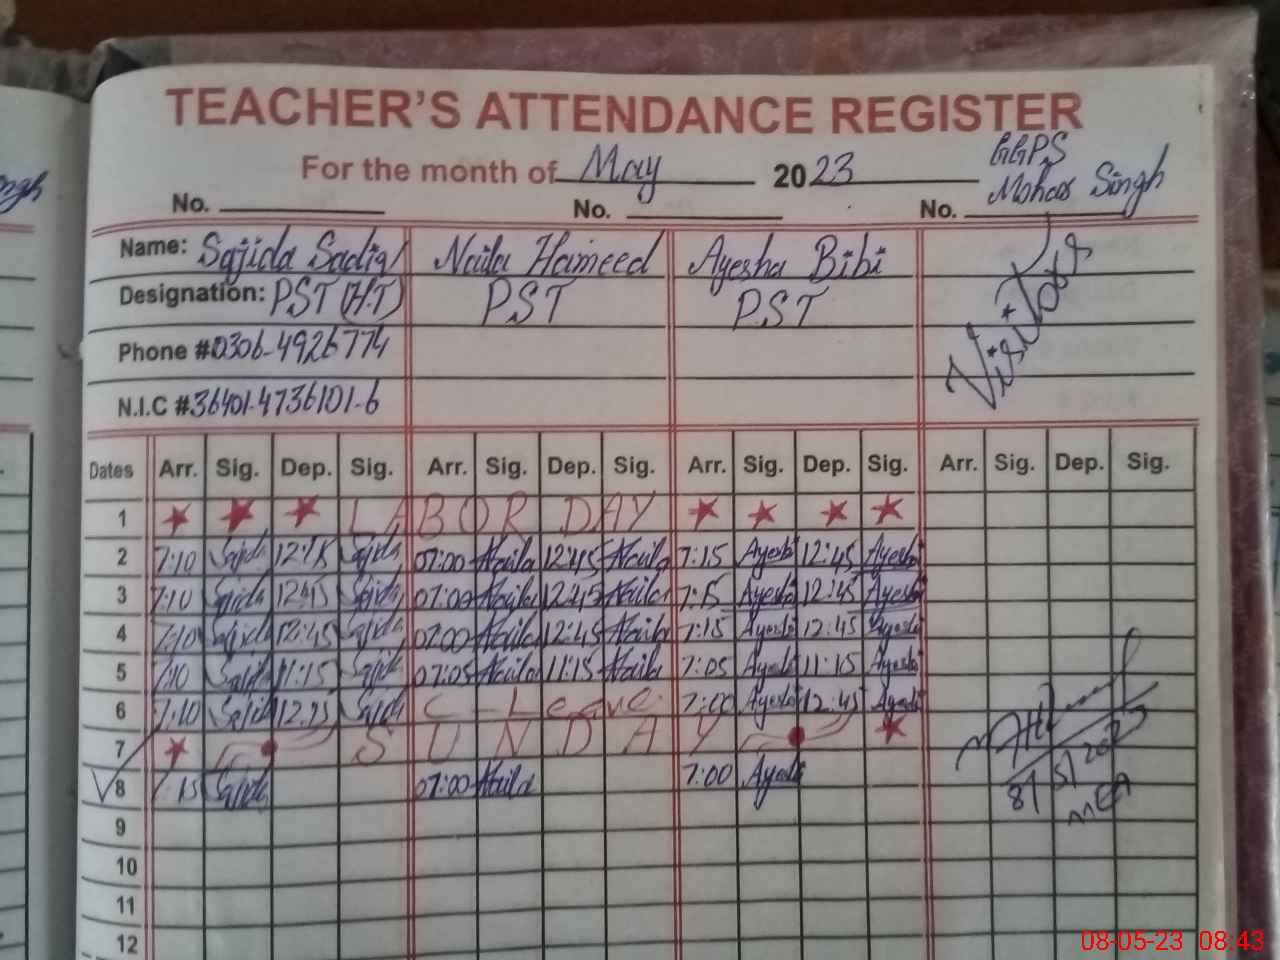 TEACHER'S ATTENDANCE REGISTER
For the month of May 2023
GGPS
Singh
No. No. No.
Name: Sajida Sadiq Naila Hameed Ayesha Bibi
Designation: PST (H.T) PST P.S.T
Visitors
Phone #0306-4926774
N.I.C #36401-4736101-6
Dates Arr. Sig. Dep. Sig. Arr. Sig. Dep. Sig. Arr. Sig. Dep. Sig. Arr. Sig. Dep. Sig.
1 LABOR DAY
2 7:10 Sajida 12:45 Sajida 07:00 Naila 12:45 Naila 7:15 Ayesha 12:45 Ayesha
3 7:10 Sajida 12:45 Sajida 07:00 Naila 12:45 Naila 7:15 Ayesha 12:45 Ayesha
4 7:10 Sajida 12:45 Sajida 07:00 Naila 12:45 Naila 7:15 Ayesha 12:45 Ayesha
5 7:10 Sajida 11:15 Sajida 07:05 Naila 11:15 Naila 7:05 Ayesha 11:15 Ayesha
6 7:10 Sajida 12:45 Sajida C Leave 7:00 Ayesha 12:45 Ayesha
7 SUNDAY
8 Sajida 07:00 Naila 7:00 Ayesha
8/5/2023
MEA
9
10
11
12
08-05-23 08:43